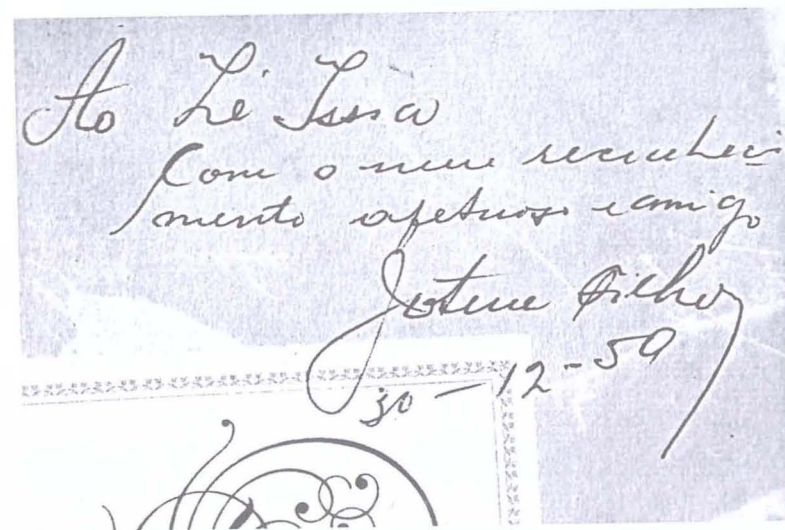 Ao Zé Issa
Com o meu reconheci
mento afetuoso e amigo
Jotene Filho
30-12-59